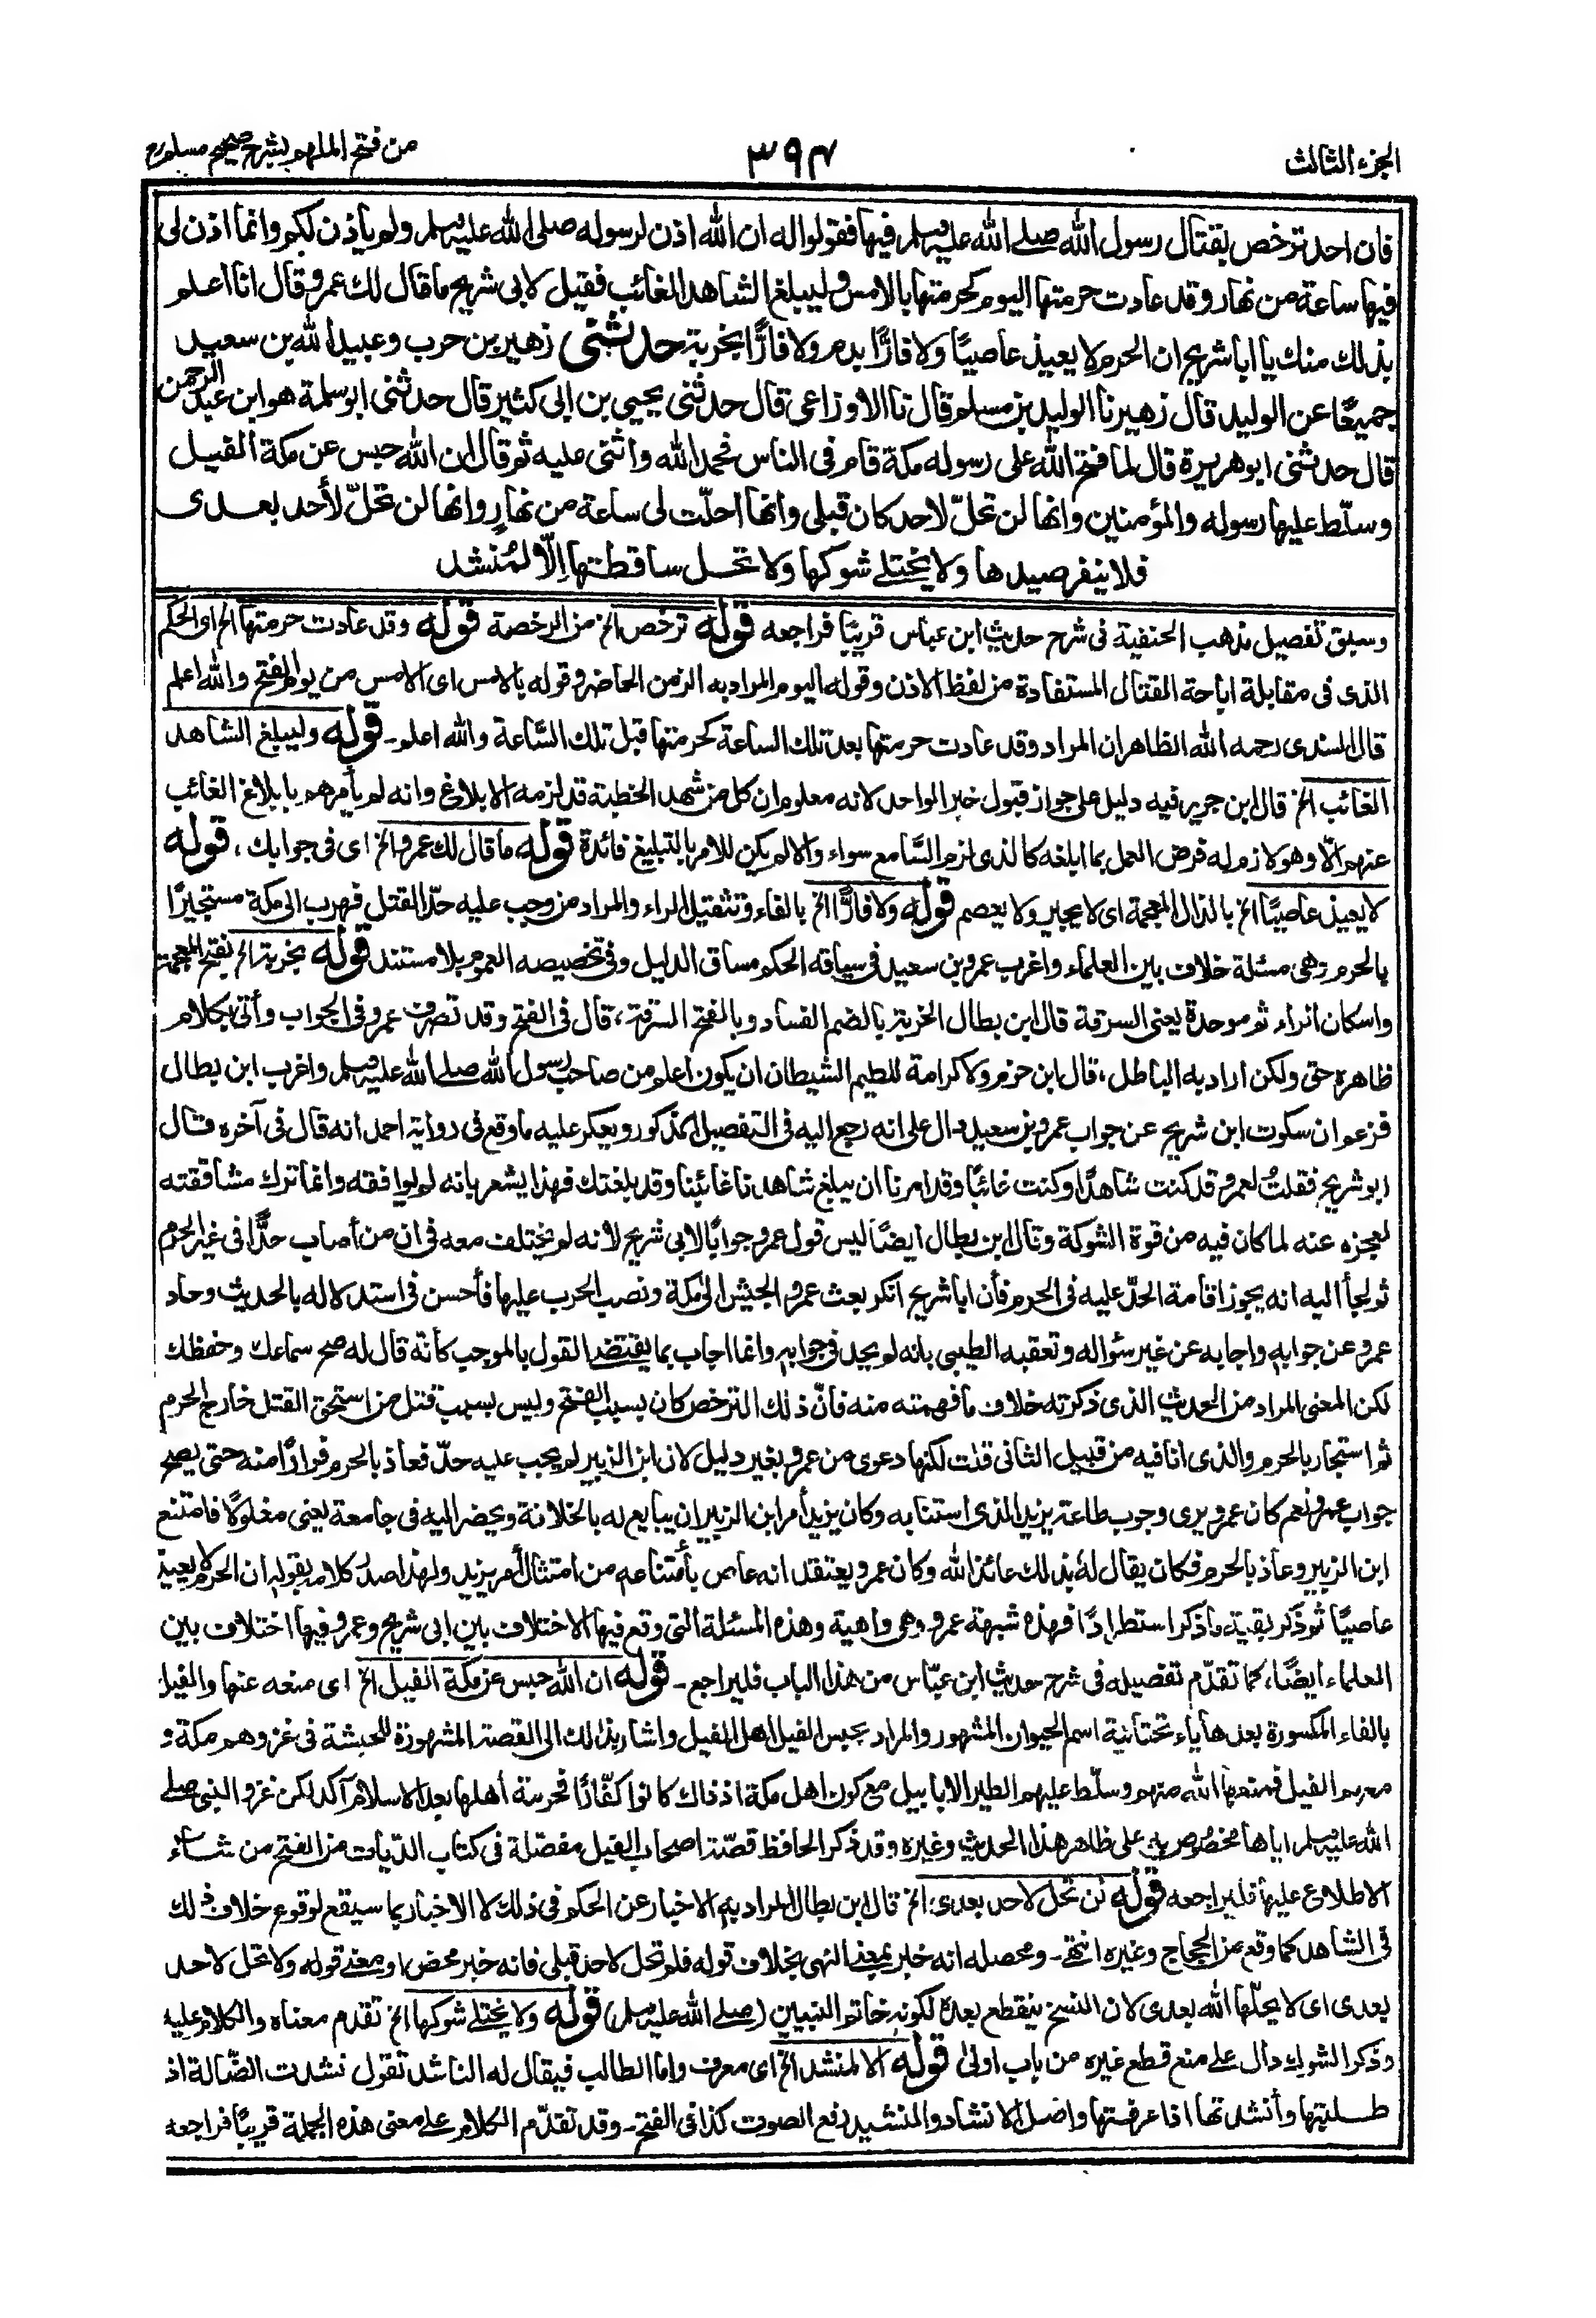 الجزء الثالث
٣٩٤
من فتح الملهم بشرح صحيح مسلم
فان احد ترخص بقتال رسول الله صلى الله عليه وسلم فيها فقولوا له ان الله اذن لرسوله صلى الله عليه وسلم ولم يأذن لكم وانما اذن لى
فيها ساعة من نهار وقد عادت حرمتها اليوم كحرمتها بالامس وليبلغ الشاهد الغائب فقيل لابى شريح ما قال لك عمرو قال انا اعلم
بذلك منك يا ابا شريح ان الحرم لا يعيذ عاصيًا ولا فارًّا بدم ولا فارًّا بخربة حدثنى زهير بن حرب وعبيد الله بن سعيد
جميعًا عن الوليد قال زهير نا الوليد بن مسلم قال نا الاوزاعى قال حدثنى يحيى بن ابى كثير قال حدثنى ابو سلمة هو ابن عبد الرحمن
قال حدثنى ابو هريرة قال لما فتح الله على رسوله مكة قام فى الناس فحمد الله واثنى عليه ثم قال ان الله حبس عن مكة الفيل
وسلّط عليها رسوله والمؤمنين وانها لن تحلّ لاحد كان قبلى وانها احلّت لى ساعة من نهارٍ وانها لن تحلّ لأحد بعدى
فلا ينفر صيدها ولا يختلى شوكها ولا تحل ساقطتها اِلّا لمُنشد
وسبق تفصيل مذهب الحنفية فى شرح حديث ابن عباس قريبًا فراجعه قوله ترخص الخ من الرخصة قوله وقد عادت حرمتها الخ اى الحكم
الذى فى مقابلة اباحة القتال المستفادة من لفظ الاذن وقوله اليوم المراد به الزمن الحاضر وقوله بالامس اى الامس من يوم الفتح والله اعلم
قال السندى رحمه الله الظاهر ان المراد وقد عادت حرمتها بعد تلك الساعة كحرمتها قبل تلك السّاعة والله اعلم۔ قوله وليبلغ الشاهد
الغائب الخ قال ابن جرير فيه دليل على جواز قبول خبر الواحد لانه معلوم ان كل من شهد الخطبة قد لزمه الابلاغ وانه لم يأمرهم بابلاغ الغائب
عنهم الّا وهو لازم له فرض العمل بما ابلغه كالذى لزم السّامع سواء والا لم يكن للامر بالتبليغ فائدة قوله ما قال لك عمرو الخ اى فى جوابك، قوله
لا يعيذ عاصيًا الخ بالذال المعجمة اى لا يجير ولا يعصم قوله ولا فارًّا الخ بالفاء وتثقيل الراء والمراد من وجب عليه حدّ القتل فهرب الى مكة مستجيرًا
بالحرم وهى مسئلة خلاف بين العلماء واغرب عمرو بن سعيد فى سياقه الحكم مساق الدليل وفى تخصيصه العموم بلا مستند قوله بخربة الخ بفتح المعجمة
واسكان الراء ثم موحدة يعنى السرقة قال ابن بطال الخربة بالضم الفساد وبالفتح السرقة، قال فى الفتح وقد تصرف عمرو فى الجواب وأتى بكلام
ظاهره حق ولكن اراد به الباطل، قال ابن حزم ولا كرامة للطيم الشيطان ان يكون اعلم من صاحب رسول الله صلى الله عليه وسلم واغرب ابن بطال
فزعم ان سكوت ابن شريح عن جواب عمرو بن سعيد دال على انه رجع اليه فى التفصيل المذكور ويعكر عليه ما وقع فى رواية احمد انه قال فى آخره قال
ابو شريح فقلتُ لعمرو قد كنت شاهدًا وكنت غائبًا وقد امرنا ان يبلغ شاهدنا غائبنا وقد بلغتك فهذا يشعر بانه لم يوافقه وانما ترك مشاققته
لعجزه عنه لما كان فيه من قوة الشوكة وقال ابن بطال ايضًا ليس قول عمرو جوابًا لابى شريح لانه لم يختلف معه فى ان من أصاب حدًّا فى غير الحرم
ثم لجأ اليه انه يجوز اقامة الحدّ عليه فى الحرم فأن ابا شريح انكر بعث عمرو الجيش الى مكة ونصب الحرب عليها فأحسن فى استدلاله بالحديث وحاد
عمرو عن جوابه واجابه عن غير سؤاله وتعقبه الطيبى بانه لم يحد فى جوابه وانما اجاب بما يقتضى القول بالموجب كأنه قال له صح سماعك وحفظك
لكن المعنى المراد من الحديث الذى ذكرته خلاف ما فهمته منه فانّ ذلك الترخص كان بسبب الفتح وليس بسبب قتل من استحق القتل خارج الحرم
ثم استجار بالحرم والذى انا فيه من قبيل الثانى قلت لكنها دعوى من عمرو بغير دليل لان ابن الزبير لم يجب عليه حدّ فعاذ بالحرم فرارًا منه حتى يصح
جواب عمرو نعم كان عمرو يرى وجوب طاعة يزيد الذى استنابه وكان يزيد أمر ابن الزبير ان يبايع له بالخلافة ويحضر اليه فى جامعة يعنى مغلولًا فامتنع
ابن الزبير وعاذ بالحرم فكان يقال له بذلك عائذ الله وكان عمرو يعتقد انه عاص بأمتناعه من امتثال أمر يزيد ولهذا صدّر كلامه بقوله ان الحرم لا يعيذ
عاصيًا ثم ذكر بقية ما ذكر استطرادًا فهذه شبهة عمرو وهى واهية وهذه المسئلة التى وقع فيها الاختلاف بين ابى شريح وعمرو فيها اختلاف بين
العلماء ايضًا، كما تقدّم تفصيله فى شرح حديث ابن عبّاس من هذا الباب فليراجع۔ قوله ان الله حبس عن مكة الفيل الخ اى منعه عنها والفيل
بالفاء المكسورة بعدها ياء تحتانية اسم الحيوان المشهور والمراد بحبس الفيل اهل الفيل واشار بذلك الى القصة المشهورة للحبشة فى غزوهم مكة و
معهم الفيل فمنعها الله منهم وسلّط عليهم الطير الابابيل مع كون اهل مكة اذ ذاك كانوا كفّارًا فحرمة أهلها بعد الاسلام آكد لكن غزو النبى صلى
الله عليه وسلم اياها مخصوص به على ظاهر هذا الحديث وغيره وقد ذكر الحافظ قصّة اصحاب الفيل مفصّلة فى كتاب الدّيات من الفتح من شاء
الاطلاع عليها فليراجعه قوله لن تحل لاحد بعدى الخ قال ابن بطال المراد به الاخبار عن الحكم فى ذلك لا الاخبار بما سيقع لوقوع خلاف ذلك
فى الشاهد كما وقع من الحجاج وغيره انتهى۔ ومحصله انه خبر بمعنى النهى بخلاف قوله فلم تحل لاحد قبلى فانه خبر محض او معنى قوله ولا تحل لاحد
بعدى اى لا يحلّها الله بعدى لان النسخ ينقطع بعده لكونه خاتم النبيين (صلى الله عليه وسلم) قوله ولا يختلى شوكها الخ تقدم معناه والكلام عليه
وذكر الشوك دال على منع قطع غيره من باب اولىٰ قوله الا لمنشد الخ اى معرف واما الطالب فيقال له الناشد تقول نشدت الضّالة اذ
طلبتها وأنشدتها اذا عرفتها واصل الانشاد والمنشيد رفع الصوت كذا فى الفتح۔ وقد تقدّم الكلام على معنى هذه الجملة قريبًا فراجعه